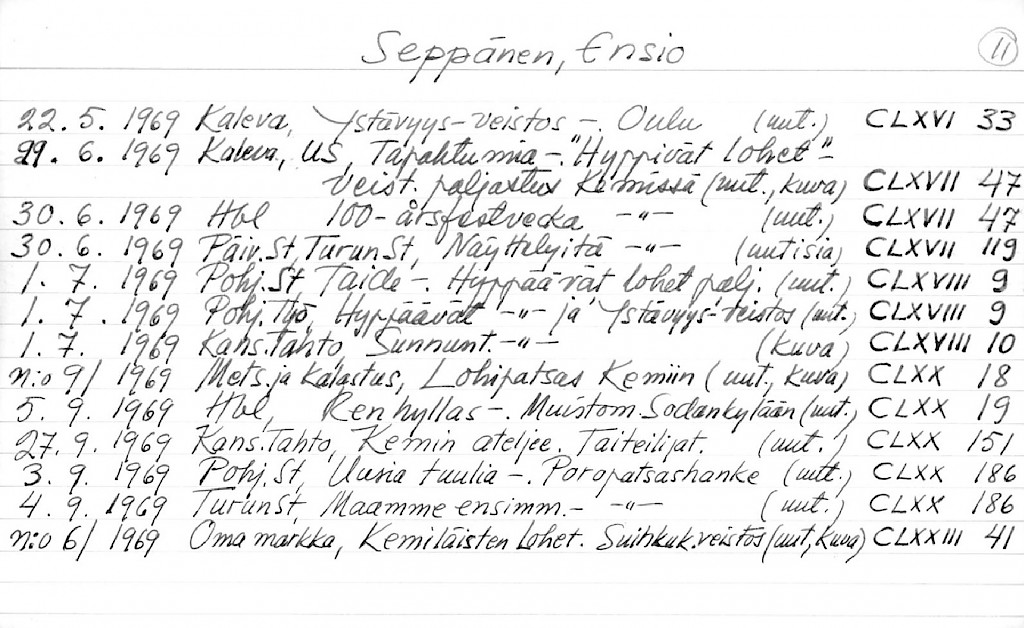 Seppänen, Ensio 11
22. 5. 1969 Kaleva, Ystävyys-veistos -. Oulu (uut.) CLXVI 33
29. 6. 1969 Kaleva, US, Tapahtumia -. "Hyppivät lohet"-
veist. paljastus Kemissä (uut., kuva) CLXVII 47
30. 6. 1969 Hbl 100-årsfestvecka -"- (uut.) CLXVII 47
30. 6. 1969 Päiv.St, Turun St, Näyttelyitä -"- (uutisia) CLXVII 119
1. 7. 1969 Pohj.St, Taide -. Hyppäävät lohet palj. (uut.) CLXVIII 9
1. 7. 1969 Pohj.Työ, Hyppäävät -"- ja Ystävyys-veistos (uut.) CLXVIII 9
1. 7. 1969 Kans.Tahto, Sunnunt. -"- (kuva) CLXVIII 10
n:o 9/ 1969 Mets. ja Kalastus, Lohipatsas Kemiin (uut., kuva) CLXX 18
5. 9. 1969 Hbl, Ren hyllas -. Muistom. Sodankylään (uut.) CLXX 19
27. 9. 1969 Kans.Tahto, Kemin ateljee. Taiteilijat. (uut.) CLXX 151
3. 9. 1969 Pohj.St, Uusia tuulia -. Poropatsashanke (uut.) CLXX 186
4. 9. 1969 Turun St, Maamme ensimm. - -"- (uut.) CLXX 186
n:o 6/ 1969 Oma markka, Kemiläisten lohet. Suihkuk.veistos (uut, kuva) CLXXIII 41